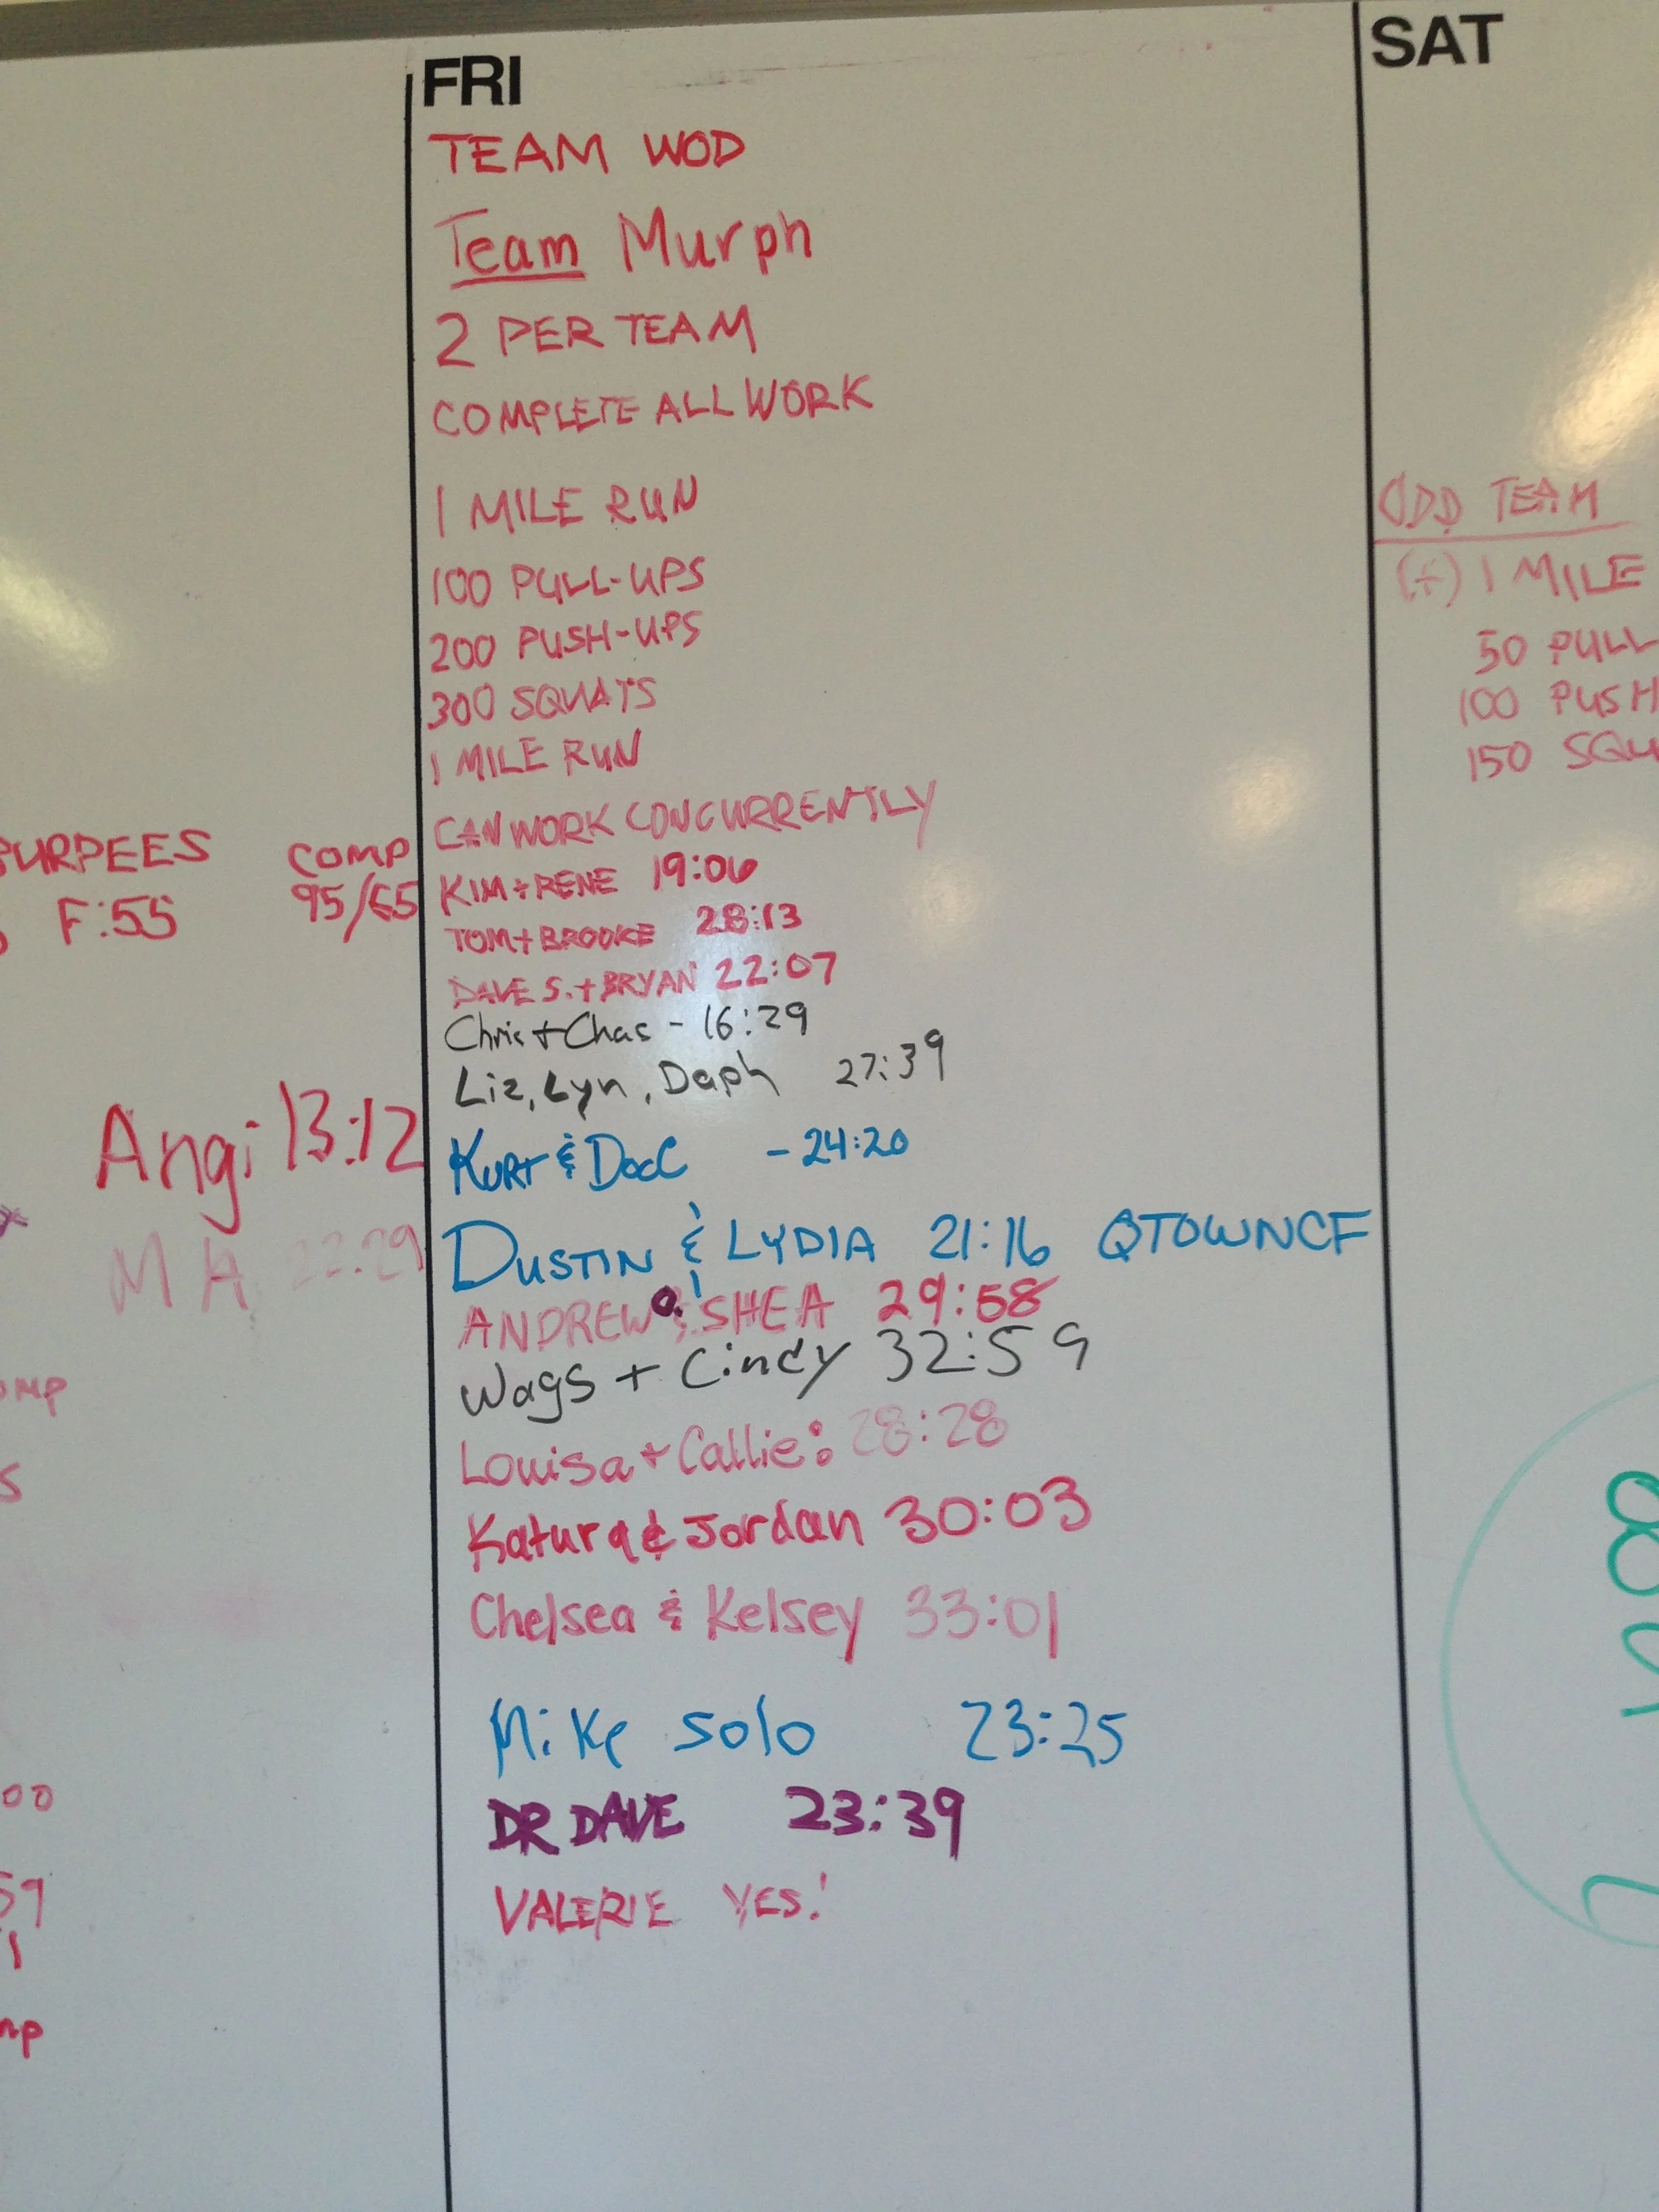 FRI
TEAM WOD
Team Murph
2 PER TEAM
COMPLETE ALL WORK
1 MILE RUN
100 PULL-UPS
200 PUSH-UPS
300 SQUATS
1 MILE RUN
CAN WORK CONCURRENTLY
KIM + RENE 19:06
TOM + BROOKE 28:13
DAVE S. + BRYAN 22:07
Chris + Chas - 16:29
Liz, Lyn, Daph 27:39
KURT & DocC - 24:20
DUSTIN & LYDIA 21:16 QTOWNCF
ANDREW & SHEA 29:58
Wags + Cindy 32:59
Louisa + Callie: 28:28
Katura & Jordan 30:03
Chelsea & Kelsey 33:01
Mike solo 23:25
DR DAVE 23:39
VALERIE YES!
SAT
ODD TEAM
(+) 1 MILE
50 PULL
100 PUSH
150 SQU
BURPEES COMP
F:55 95/65
Angi 13:12
MA 22:29
omp
s
00
59
1
mp